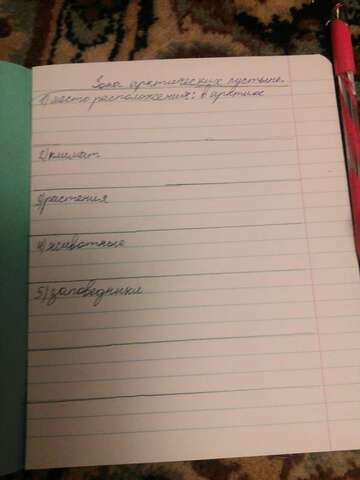 Зона арктических пустынь.
1) место расположения: в арктике
2) климат
3) растения
4) животные
5) заповедники